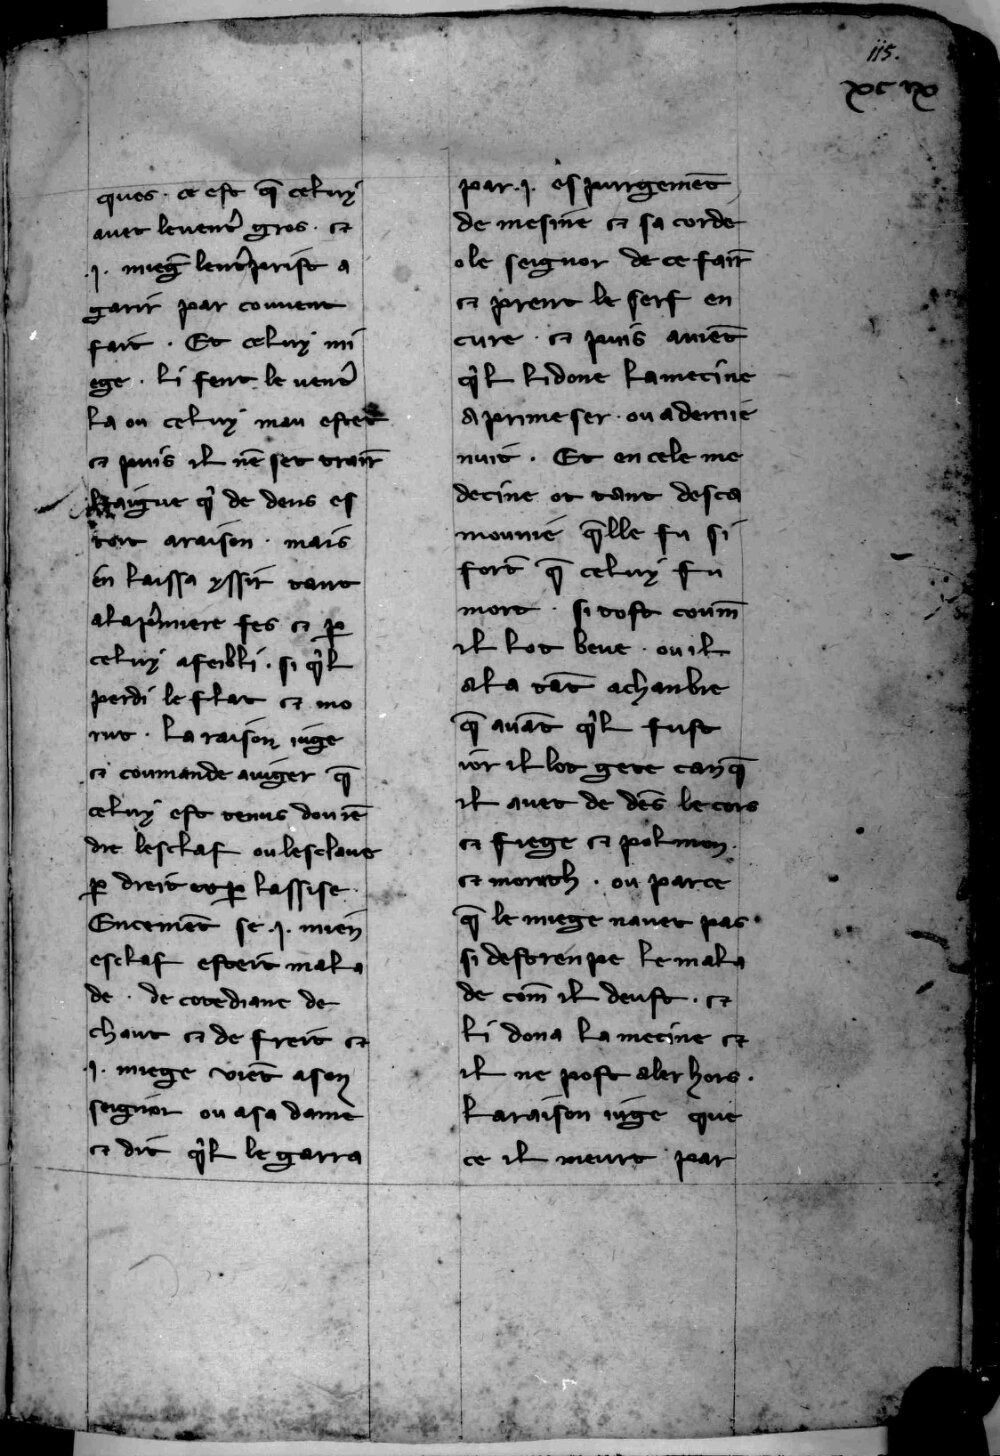 115.
xcix
ques · ce est q̄ celuy
auet leuentʼ gros · et
.j. mieḡ lentʼprist a
garir par couuent
fait · Et celuy mi
ege · li fent le uentʼ
la ou celuy mau estet
et puis il nē set trair̄
laigue qʼ de dens es
toit araison · mais
en laissa yssir tant
alapʼmiere fes et ꝑ
celuy afeibli · si qʼl
perdi le flat et mo
rut · La raison iuge
et coumande auiger q̄
celuy est tenus dou rē
dre lesclaf ou lesclaue
ꝑ dreit et ꝑ lassise ·
Encemēt se .j. mien
esclaf esteit mala
de · de cotediane de
chaut et de freit et
.j. miege viēt ason
seignor ou asa dame
et dit qʼl le garra
par .j. espurgemēt
de mesine et sa corde
o le seignor de ce fair̄
et prent le serf en
cure · et puis auiēt
qʼl li done la mecine
a prime ser · ou ademie
nuit · Et en cele me
decine ot tant desca
mounie q̄lle fu si
fort q̄ celuy fu
mort · si tost coum̄
il lot beue · ou il
ala tāt achanbre
q̄ auāt qʼl fust
ior il lot gete canq̄
il auet de dēs le cors
et fiege et polmon ·
et moruth · ou parce
q̄ le miege nauet pas
si destrenpe le mala
de com̄ il deust · et
li dona la mecine et
il ne post aler hors ·
La raison iuge que
ce il meurt par